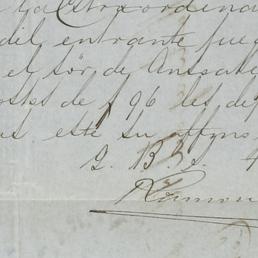 Extraordina
dil entrante jue
el sōr de Anssate
ostes de $ 96 les de
us este su affmo
Q. B. S.
Ramon